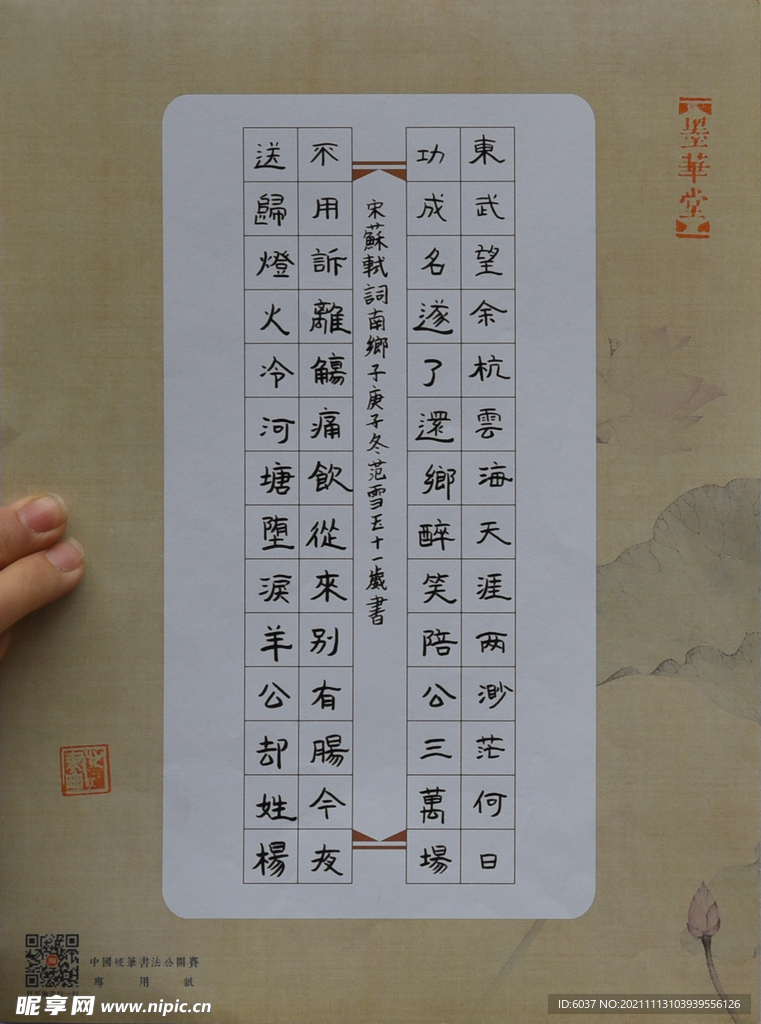 東武望余杭雲海天涯两渺茫何日
功成名遂了還鄉醉笑陪公三萬場
宋蘇軾詞南鄉子庚子冬范雪五十一歲書
不用訴離觴痛飲從來别有腸今夜
送歸燈火冷河塘墮淚羊公却姓楊
墨華堂
中國硬筆書法公開賽
專用紙
昵享网 www.nipic.cn
ID:6037 NO:20211113103939556126